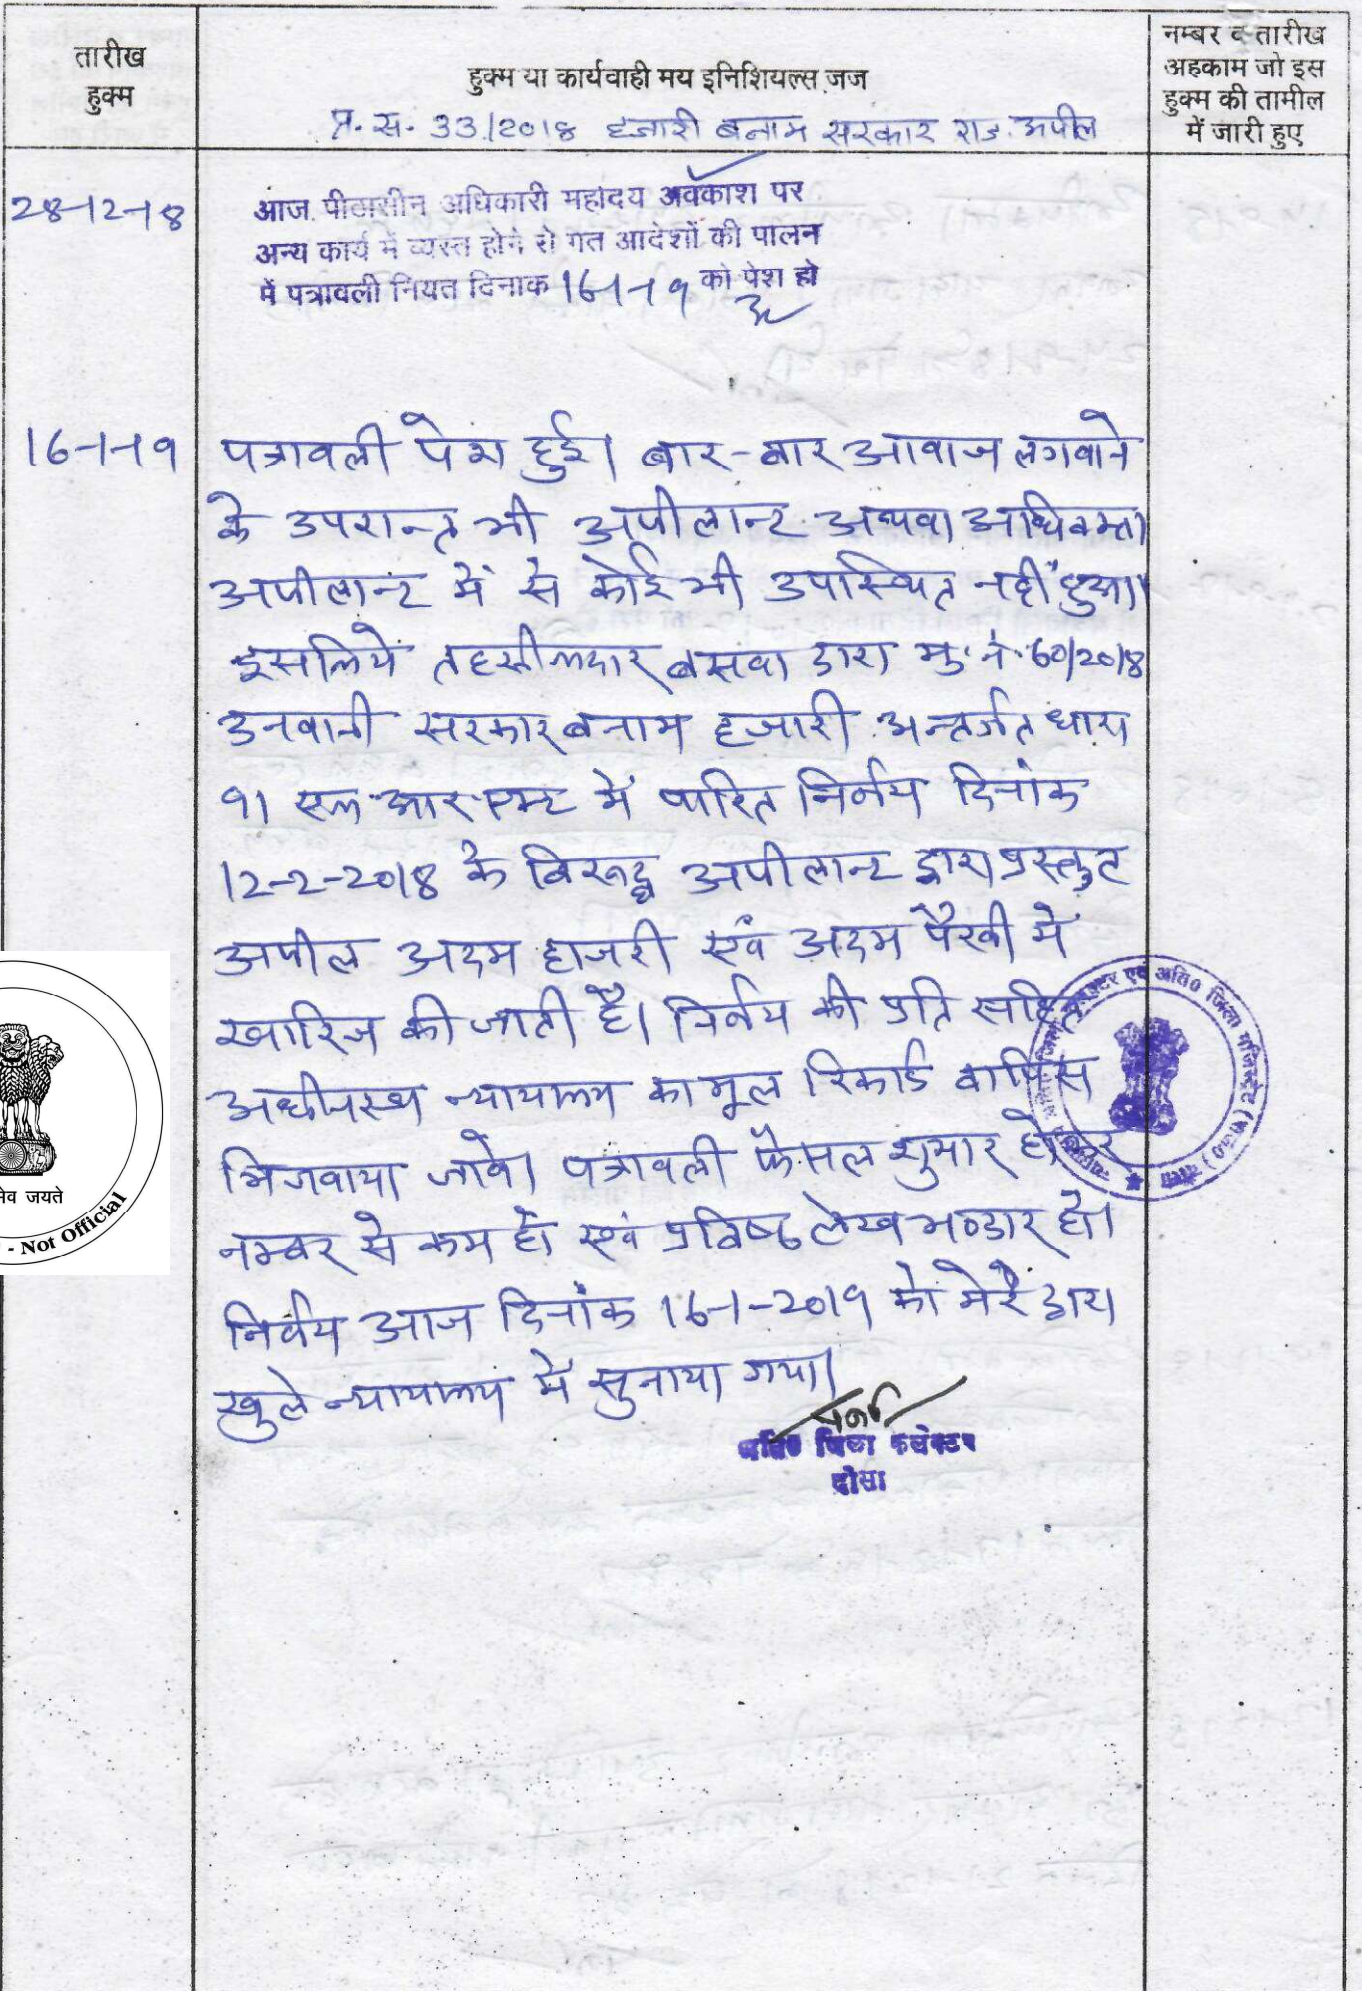 तारीख
हुक्म
हुक्म या कार्यवाही मय इनिशियल्स जज
नम्बर व तारीख
अहकाम जो इस
हुक्म की तामील
में जारी हुए
प्र. स. 33/2018 हजारी बनाम सरकार राज. अपील
28-12-18
आज पीठासीन अधिकारी महोदय अवकाश पर
अन्य कार्य में व्यस्त होने से गत आदेशों की पालन
में पत्रावली नियत दिनांक 16-1-19 को पेश हो
16-1-19
पत्रावली पेश हुई। बार-बार आवाज लगवाने
के उपरान्त भी अपीलान्ट अथवा अधिवक्ता
अपीलान्ट में से कोई भी उपस्थित नहीं हुआ।
इसलिये तहसीलदार बसवा द्वारा मु. नं. 60/2018
उनवानी सरकार बनाम हजारी अन्तर्गत धारा
91 एल.आर. एक्ट में पारित निर्णय दिनांक
12-2-2018 के विरूद्ध अपीलान्ट द्वारा प्रस्तुत
अपील अदम हाजरी एवं अदम पैरवी में
खारिज की जाती है। निर्णय की प्रति सहित
अधीनस्थ न्यायालय का मूल रिकार्ड वापिस
भिजवाया जावे। पत्रावली फैसल शुमार होकर
नम्बर से कम हो एवं प्रविष्ठ लेख भण्डार हो।
निर्णय आज दिनांक 16-1-2019 को मेरे द्वारा
खुले न्यायालय में सुनाया गया।
अति० जिला कलेक्टर
दौसा
कलक्टर एवं अति० जिला मजिस्ट्रेट (राज०) दौसा
जयते
- Not Official